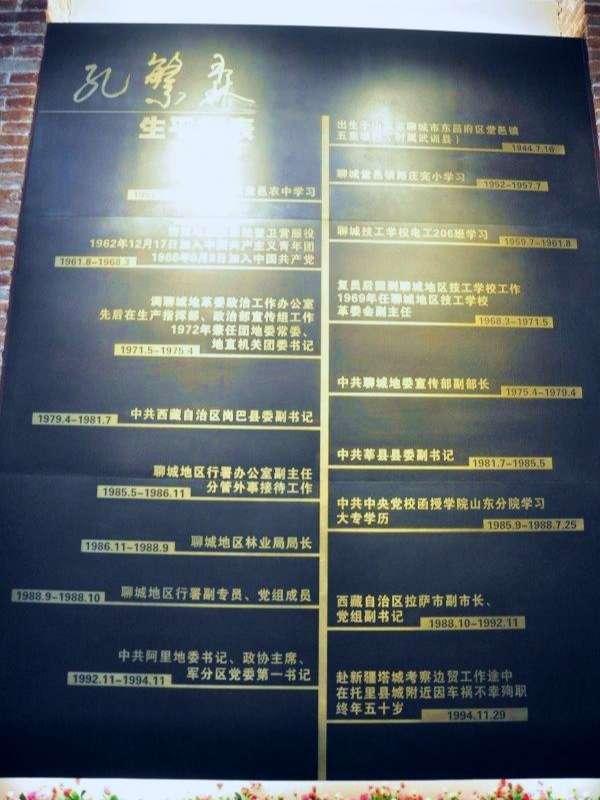 孔繁森
生平
出生于 聊城市东昌府区堂邑镇
1944.7.16
聊城堂邑镇 庄完小学习
1952-1957.7
堂邑农中学习
聊城技工学校电工206班学习
1959.7-1961.8
卫营服役
1962年12月17日加入中国共产主义青年团
1966年9月9日加入中国共产党
1961.8-1968.3
复员后回到聊城地区技工学校工作
1969年任聊城地区技工学校
革委会副主任
1968.3-1971.5
调聊城地革委政治工作办公室
先后在生产指挥部、政治部宣传组工作
1972年兼任团地委常委、
地直机关团委书记
1971.5-1975.4
中共聊城地委宣传部副部长
1975.4-1979.4
中共西藏自治区岗巴县委副书记
1979.4-1981.7
中共莘县县委副书记
1981.7-1985.5
聊城地区行署办公室副主任
分管外事接待工作
1985.5-1986.11
中共中央党校函授学院山东分院学习
大专学历
1985.9-1988.7.25
聊城地区林业局局长
1986.11-1988.9
聊城地区行署副专员、党组成员
1988.9-1988.10
西藏自治区拉萨市副市长、
党组副书记
1988.10-1992.11
中共阿里地委书记、政协主席、
军分区党委第一书记
1992.11-1994.11
赴新疆塔城考察边贸工作途中
在托里县城附近因车祸不幸殉职
终年五十岁
1994.11.29